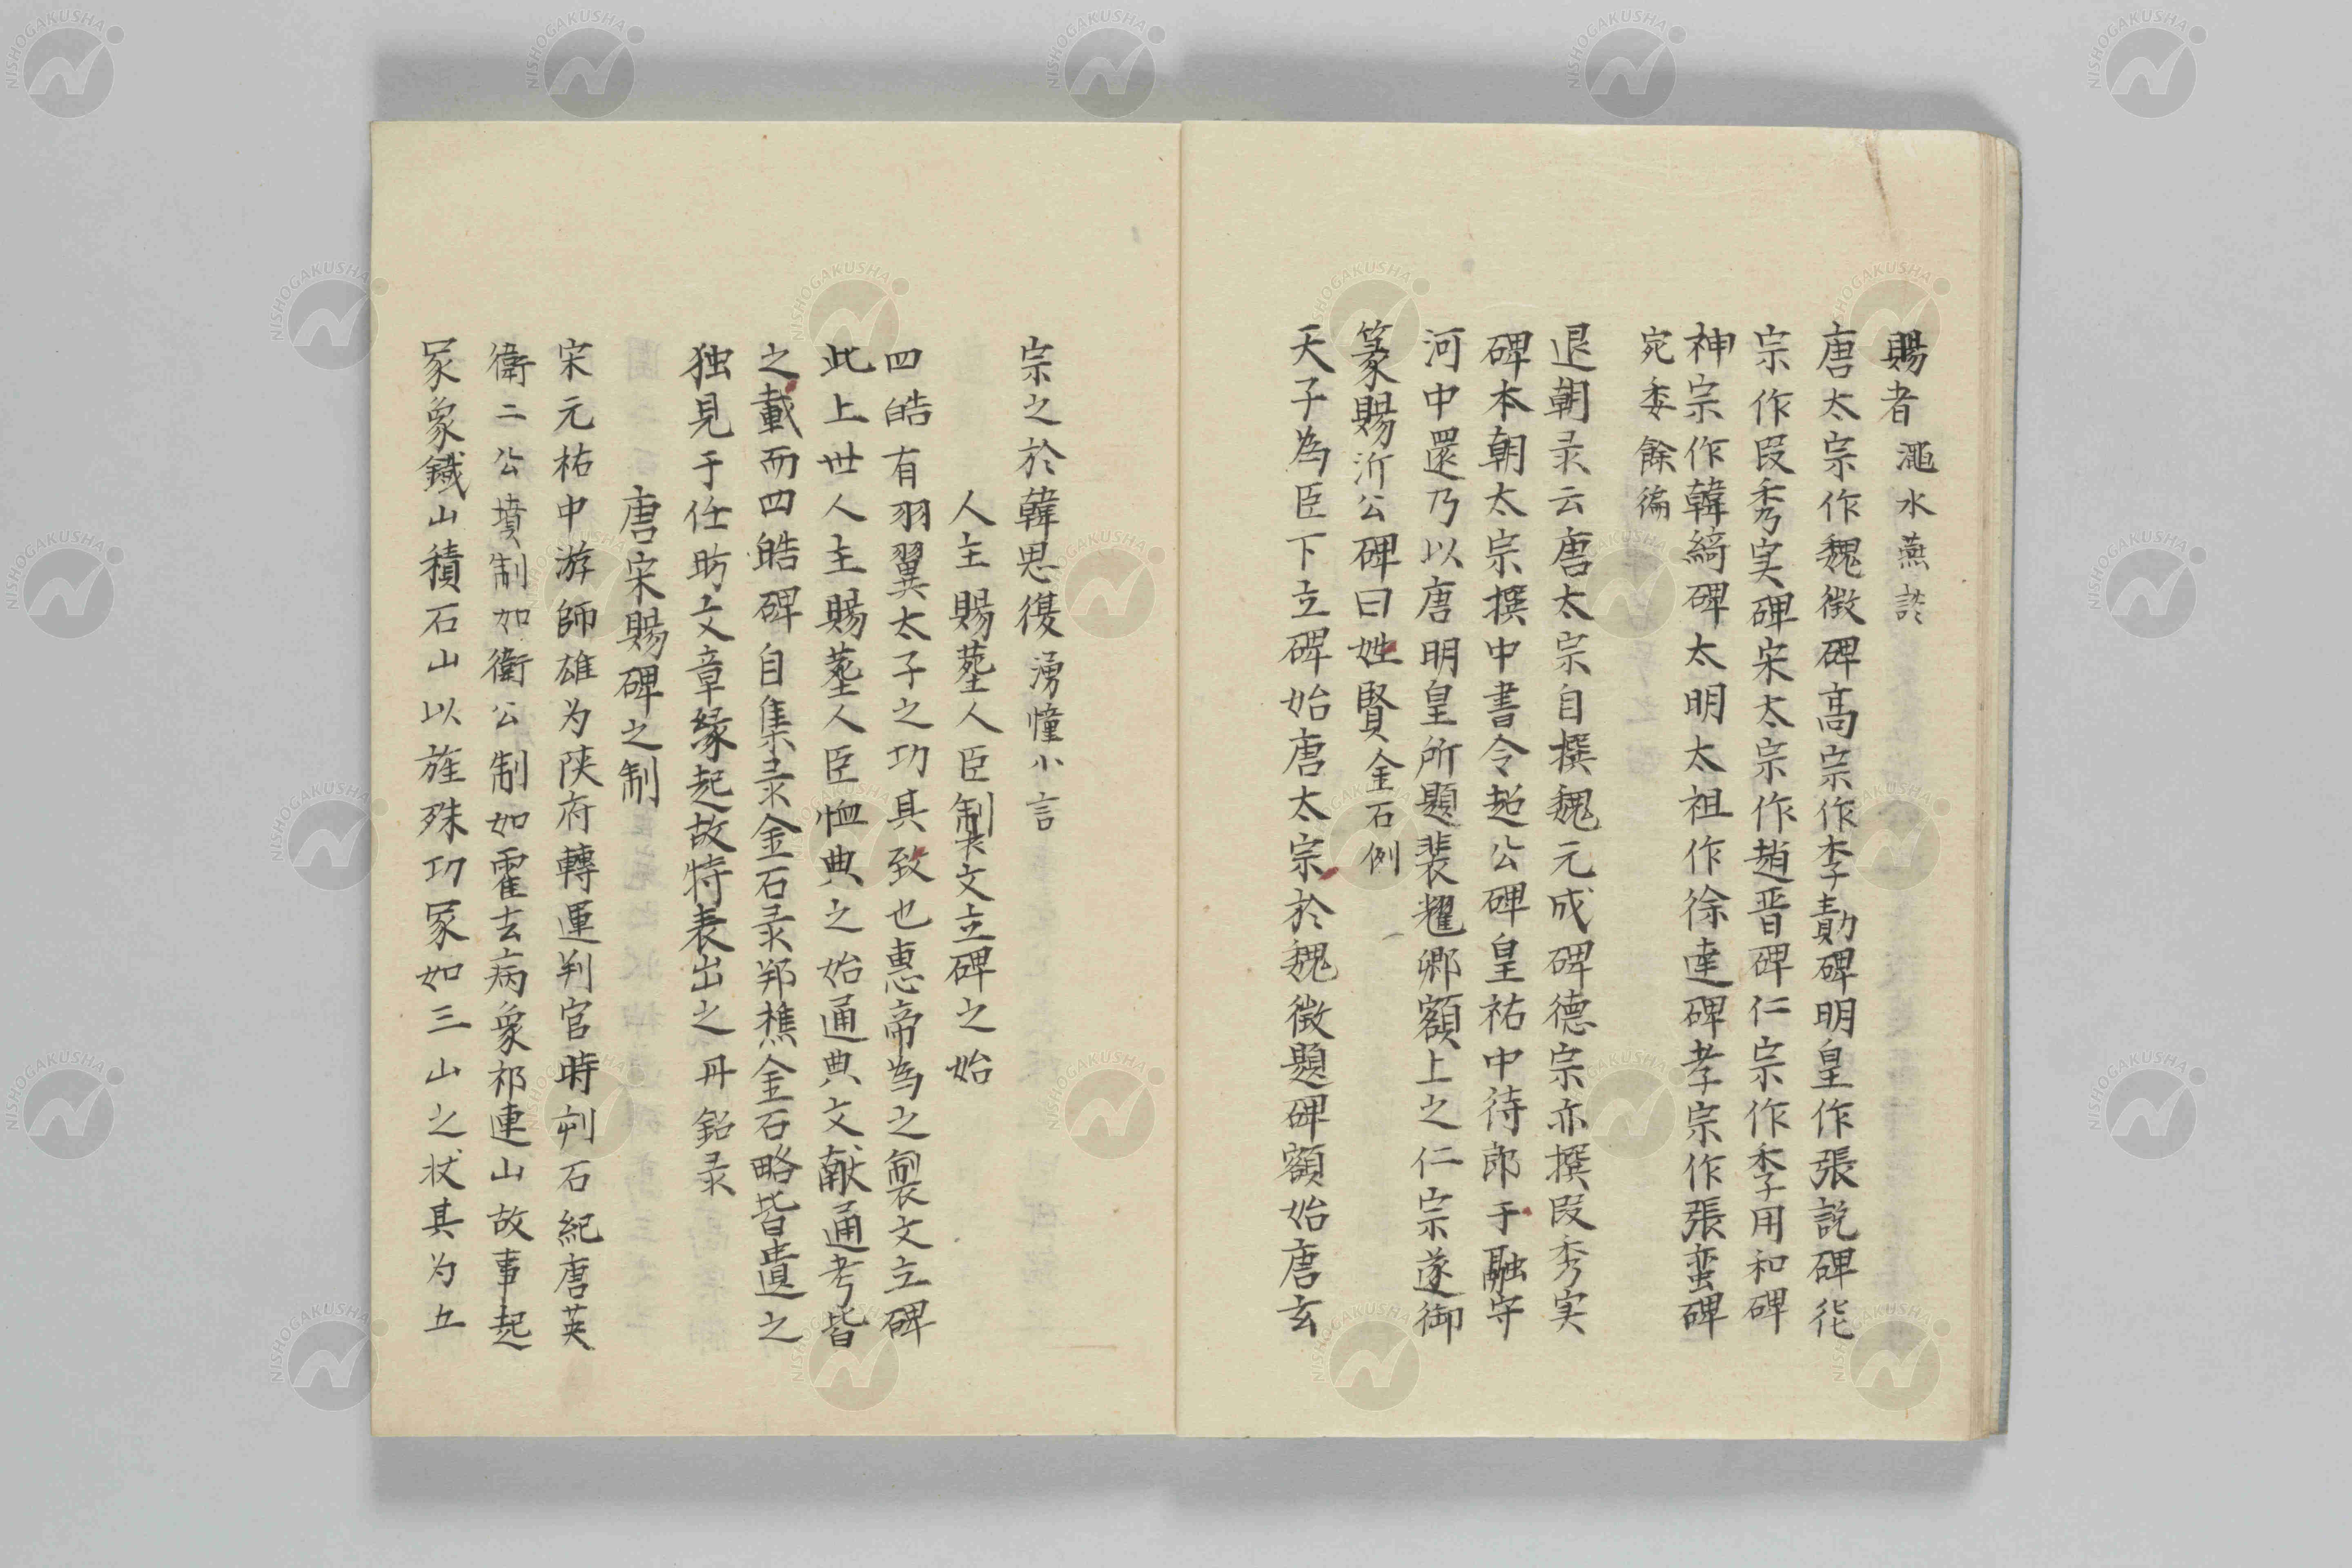 賜者 澠水燕談
唐太宗作魏徴碑高宗作李勣碑明皇作張説碑徳
宗作段秀実碑宋太宗作趙晋碑仁宗作李用和碑
神宗作韓綺碑太明太祖作徐達碑孝宗作張蛮碑
宛委餘徧
退朝录云唐太宗自撰魏元成碑德宗亦撰段秀実
碑本朝太宗撰中書令趙公碑皇祐中待郎于融守
河中還乃以唐明皇所題裴耀卿額上之仁宗遂御
篆賜沂公碑曰姓賢 金石例
天子為臣下立碑始唐太宗於魏徴題碑額始唐玄
宗之於韓思復 湧幢小言
人主賜塟人臣製文立碑之始
四皓有羽翼太子之功其致也惠帝為之製文立碑
此上世人主賜塟人臣恤典之始通典文献通考皆
之載而四皓碑自集录金石录郑樵金石略皆遺之
独見于任昉文章縁起故特表出之 丹鉛录
唐宋賜碑之制
宋元祐中游師雄为陕府轉運判官時刋石紀唐英
衛二公墳制如衛公制如霍去病象祁連山故事起
冢象鐵山積石山以旌殊功冢如三山之状其为五
NISHOGAKUSHA